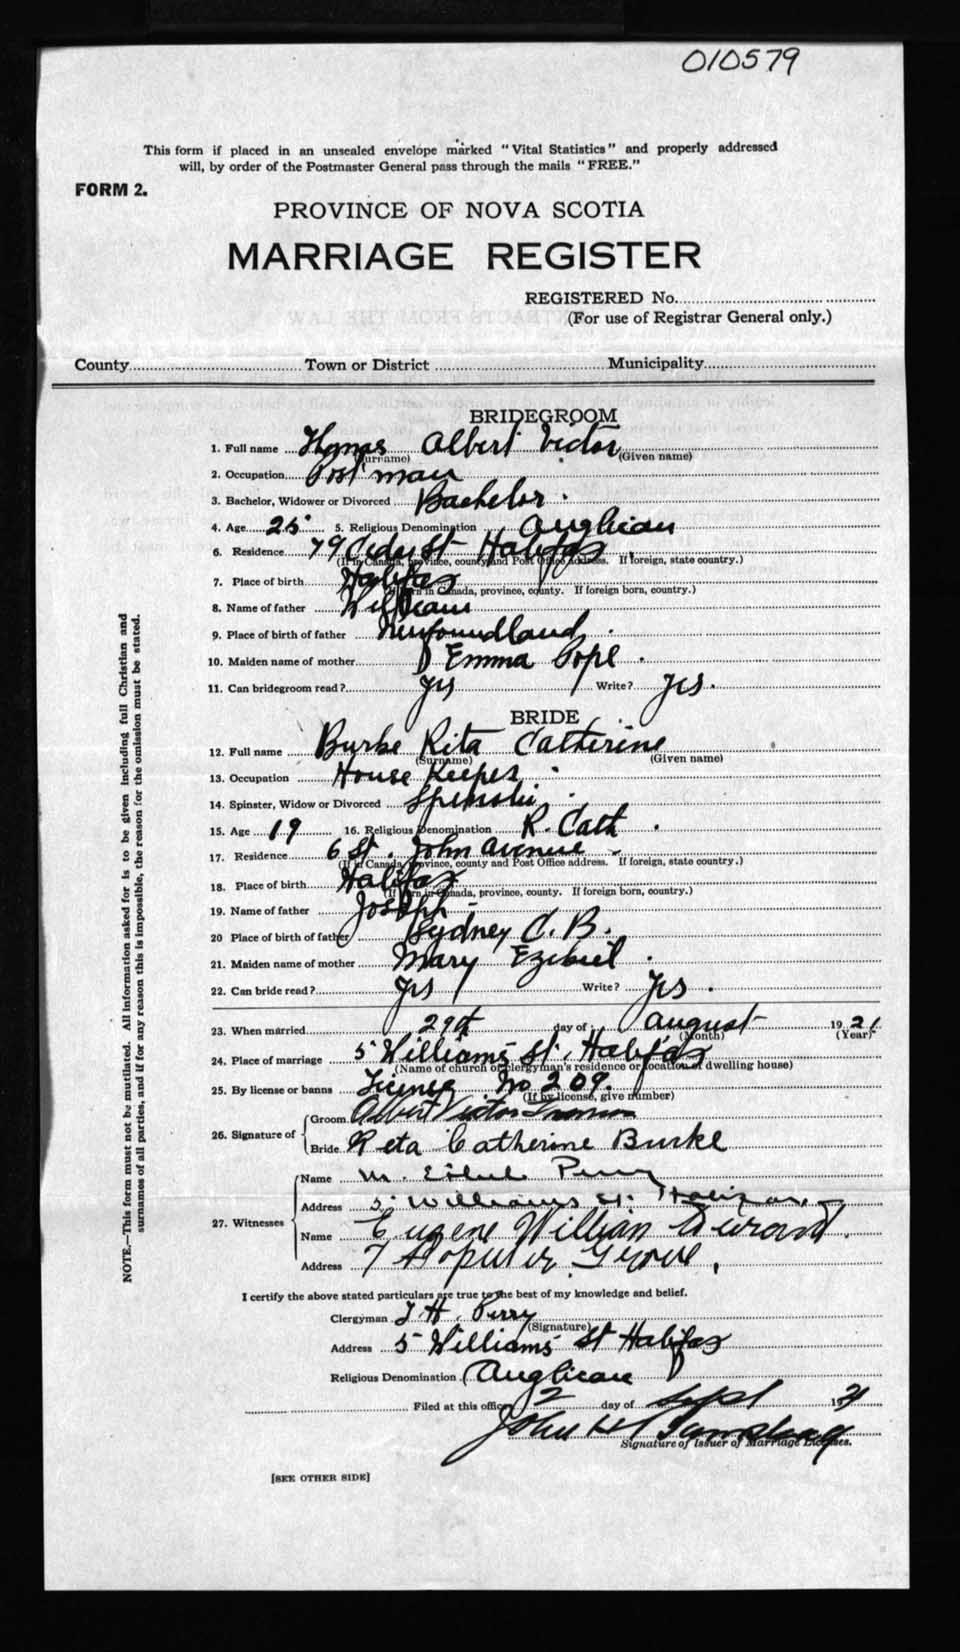 010579
This form if placed in an unsealed envelope marked "Vital Statistics" and properly addressed
will, by order of the Postmaster General pass through the mails "FREE."
FORM 2.
PROVINCE OF NOVA SCOTIA
MARRIAGE REGISTER
REGISTERED No.
(For use of Registrar General only.)
County Town or District Municipality
BRIDEGROOM
1. Full name Thomas Albert Victor
(Surname) (Given name)
2. Occupation Postman
3. Bachelor, Widower or Divorced Bachelor.
4. Age 25 5. Religious Denomination Anglican
6. Residence 79 Cedar St Halifax
(If in Canada, province, county and Post Office address. If foreign, state country.)
7. Place of birth Halifax
(If born in Canada, province, county. If foreign born, country.)
8. Name of father William
9. Place of birth of father Newfoundland.
10. Maiden name of mother Emma Pope.
11. Can bridegroom read? Yes Write? Yes.
BRIDE
12. Full name Burke Rita Catherine
(Surname) (Given name)
13. Occupation House Keeper
14. Spinster, Widow or Divorced Spinster
15. Age 19 16. Religious Denomination R. Cath.
17. Residence 6 St. John Avenue
(If in Canada, province, county and Post Office address. If foreign, state country.)
18. Place of birth Halifax
(If born in Canada, province, county. If foreign born, country.)
19. Name of father Joseph
20 Place of birth of father Sydney C. B.
21. Maiden name of mother Mary Ezekiel.
22. Can bride read? Yes Write? Yes.
23. When married 29th day of August 1921
(Month) (Year)
24. Place of marriage 5 Williams St. Halifax
(Name of church or clergyman's residence or location of dwelling house)
25. By license or banns License No 209.
(If by license, give number)
26. Signature of
Groom Albert Victor Thomas
Bride Reta Catherine Burke
27. Witnesses
Name M. Ethel Perry
Address 5 Williams St. Halifax
Name Eugene William Durand.
Address 7 Poplar Grove.
I certify the above stated particulars are true to the best of my knowledge and belief.
Clergyman T. H. Perry
(Signature)
Address 5 Williams St Halifax
Religious Denomination Anglican
Filed at this office 2 day of Sept 1921
John H
Signature of Issuer of Marriage Licenses.
[SEE OTHER SIDE]
NOTE.—This form must not be mutilated. All information asked for is to be given including full Christian and
surnames of all parties, and if for any reason this is impossible, the reason for the omission must be stated.